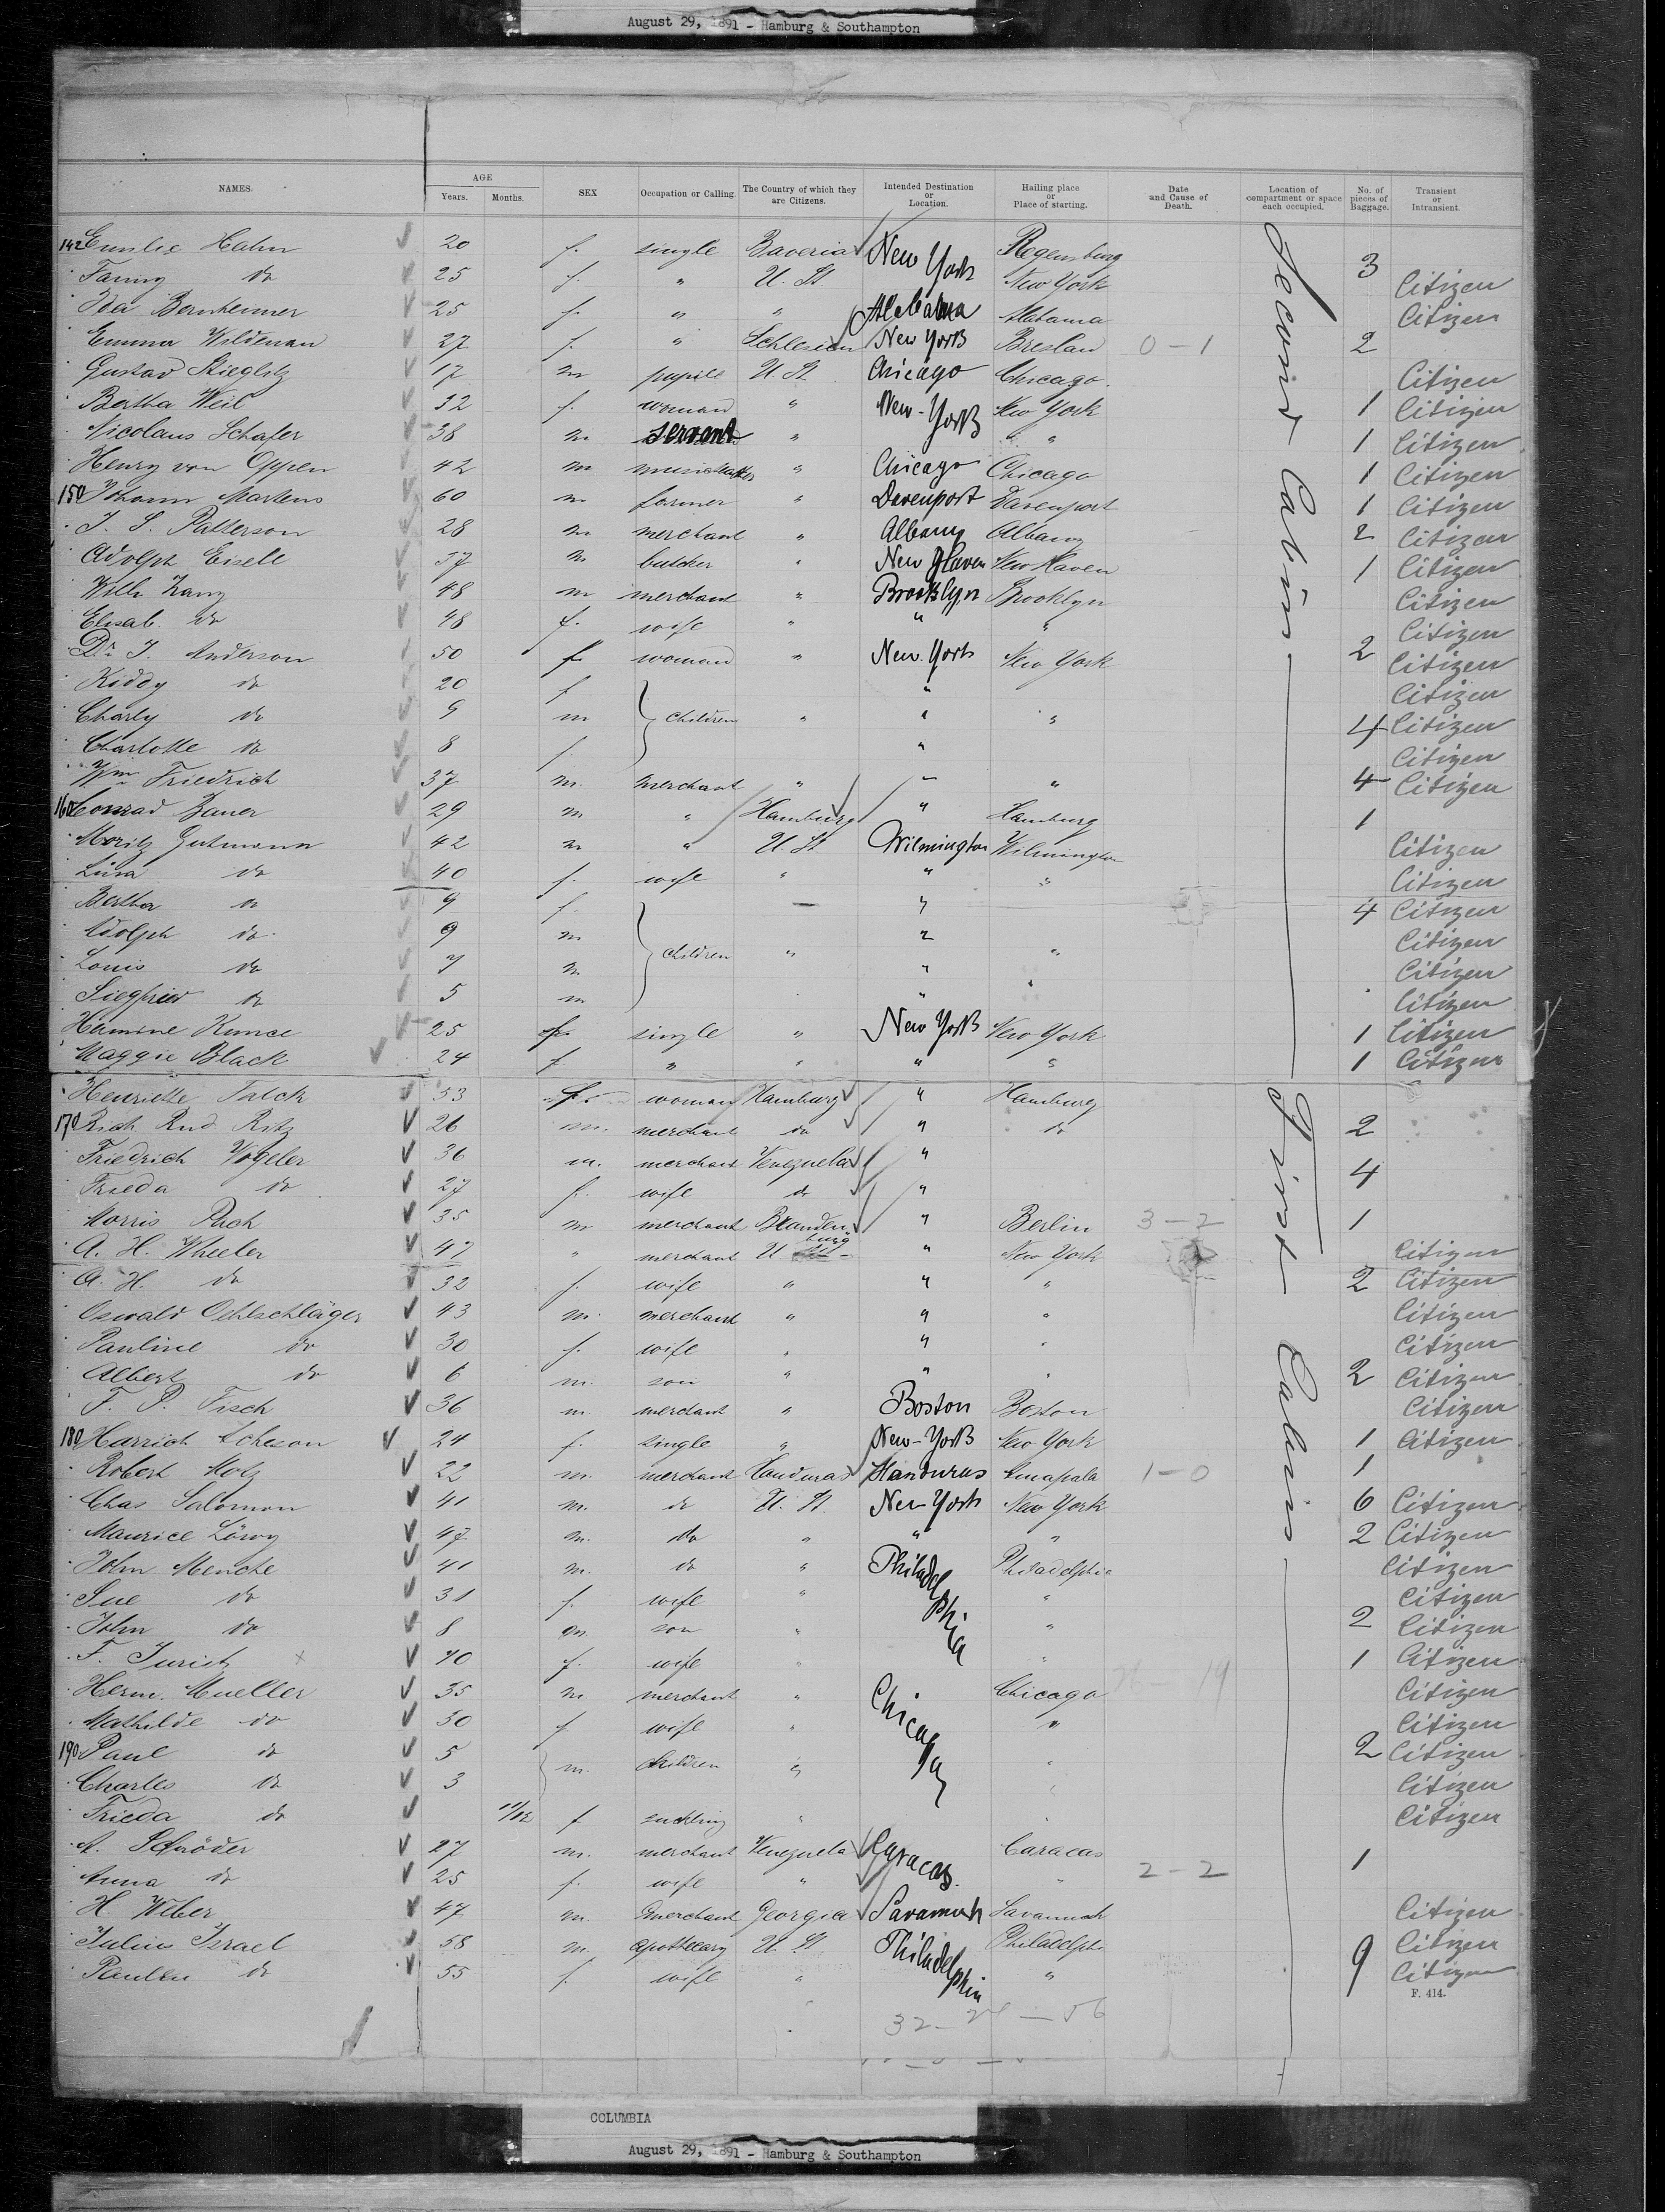 August 29, 1891 - Hamburg & Southampton
NAMES. AGE Years. Months. SEX Occupation or Calling. The Country of which they are Citizens. Intended Destination or Location. Hailing place or Place of starting. Date and Cause of Death. Location of compartment or space each occupied. No. of pieces of Baggage. Transient or Intransient.
Second Cabin
142 Emilie Hahn 20 f. single Bavaria New York Regensburg 3
Fanny do 25 f. " U. St New York Citizen
Ida Bernheimer 25 f. " " Alabama Alabama Citizen
Emma Wildenau 27 f. " Schlesien New York Breslau 0-1 2
Gustav Stieglitz 17 m pupill U. St. Chicago Chicago. Citizen
Bertha Weil 32 f. woman " New-York New York 1 Citizen
Nicolaus Schafer 38 m servant " " " 1 Citizen
Henry von Oppen 42 m " Chicago Chicago 1 Citizen
150 Johann Martens 60 m farmer " Davenport Davenport 1 Citizen
J. S. Patterson 28 m merchant " Albany Albany 2 Citizen
Adolph Eisele 37 m butcher " New Haven New Haven 1 Citizen
Willi Zang 48 m merchant " Brooklyn Brooklyn Citizen
Elisab. do 48 f. wife " " " Citizen
Dr. J. Anderson 50 f woman " New York New York 2 Citizen
Kiddy do 20 f " Citizen
Charly do 9 m children " " " 4 Citizen
Charlotte do 8 f. " Citizen
Wm Friedrich 37 m. merchant " " " 4 Citizen
160 Conrad Bauer 29 m " Hamburg " Hamburg 1
Moritz Gutmann 42 m " U. St Wilmington Wilmington Citizen
Lina do 40 f. wife " " " Citizen
Bertha do 9 f. — " 4 Citizen
Adolph do 9 m " Citizen
Louis do 7 m children " " " Citizen
Siegfried do 5 m " " Citizen
Hermine Kunce 25 f. single " New York New York 1 Citizen
Maggie Black 24 f " " " " 1 Citizen
First Cabin
Henriette Falck 53 f. woman Hamburg " Hamburg
170 Rich. Rud. Ritz 26 m. merchant do " do 2
Friedrich Vogeler 36 m. merchant Venezuela " 4
Frieda do 27 f. wife do "
Morris Puch 35 m merchant Brandenburg " Berlin 3-2 1
A. H. Wheeler 47 " merchant U. St " New York Citizen
A. H. do 32 f. wife " " " 2 Citizen
Oswald Oehlschläger 43 m. merchant " " " Citizen
Pauline do 30 f. wife " " " Citizen
Albert do 6 m. son " " " 2 Citizen
F. P. Fisch 36 m. merchant " Boston Boston Citizen
180 Harrich Acheson 24 f. single " New-York New York 1 Citizen
Robert Motz 22 m. merchant Handuras Handuras Amapala 1-0 1
Chas Salomon 41 m. do U. St. New York New York 6 Citizen
Maurice Löwy 47 m. do " " " 2 Citizen
John Menche 41 m. do " Philadelphia Philadelphia Citizen
Sue do 31 f. wife " " Citizen
John do 8 m. son " " 2 Citizen
F. Jurist 40 f. wife " " 1 Citizen
Herm. Mueller 35 m merchant " Chicago Chicago Citizen
Mathilde do 30 f. wife " " Citizen
190 Paul do 5 m. children " " 2 Citizen
Charles do 3 " Citizen
Frieda do 11/12 f suckling " " Citizen
A. Schröder 27 m. merchant Venezuela Caracas. Caracas 1
Anna do 25 f. wife " " 2-2
H. Weber 47 m. merchant Georgia Savannah Savannah Citizen
Julius Israel 58 m. apothecary U. St Philadelphia Philadelph. Citizen
do 55 f. wife " " 9 Citizen
F. 414.
COLUMBIA
August 29, 1891 - Hamburg & Southampton